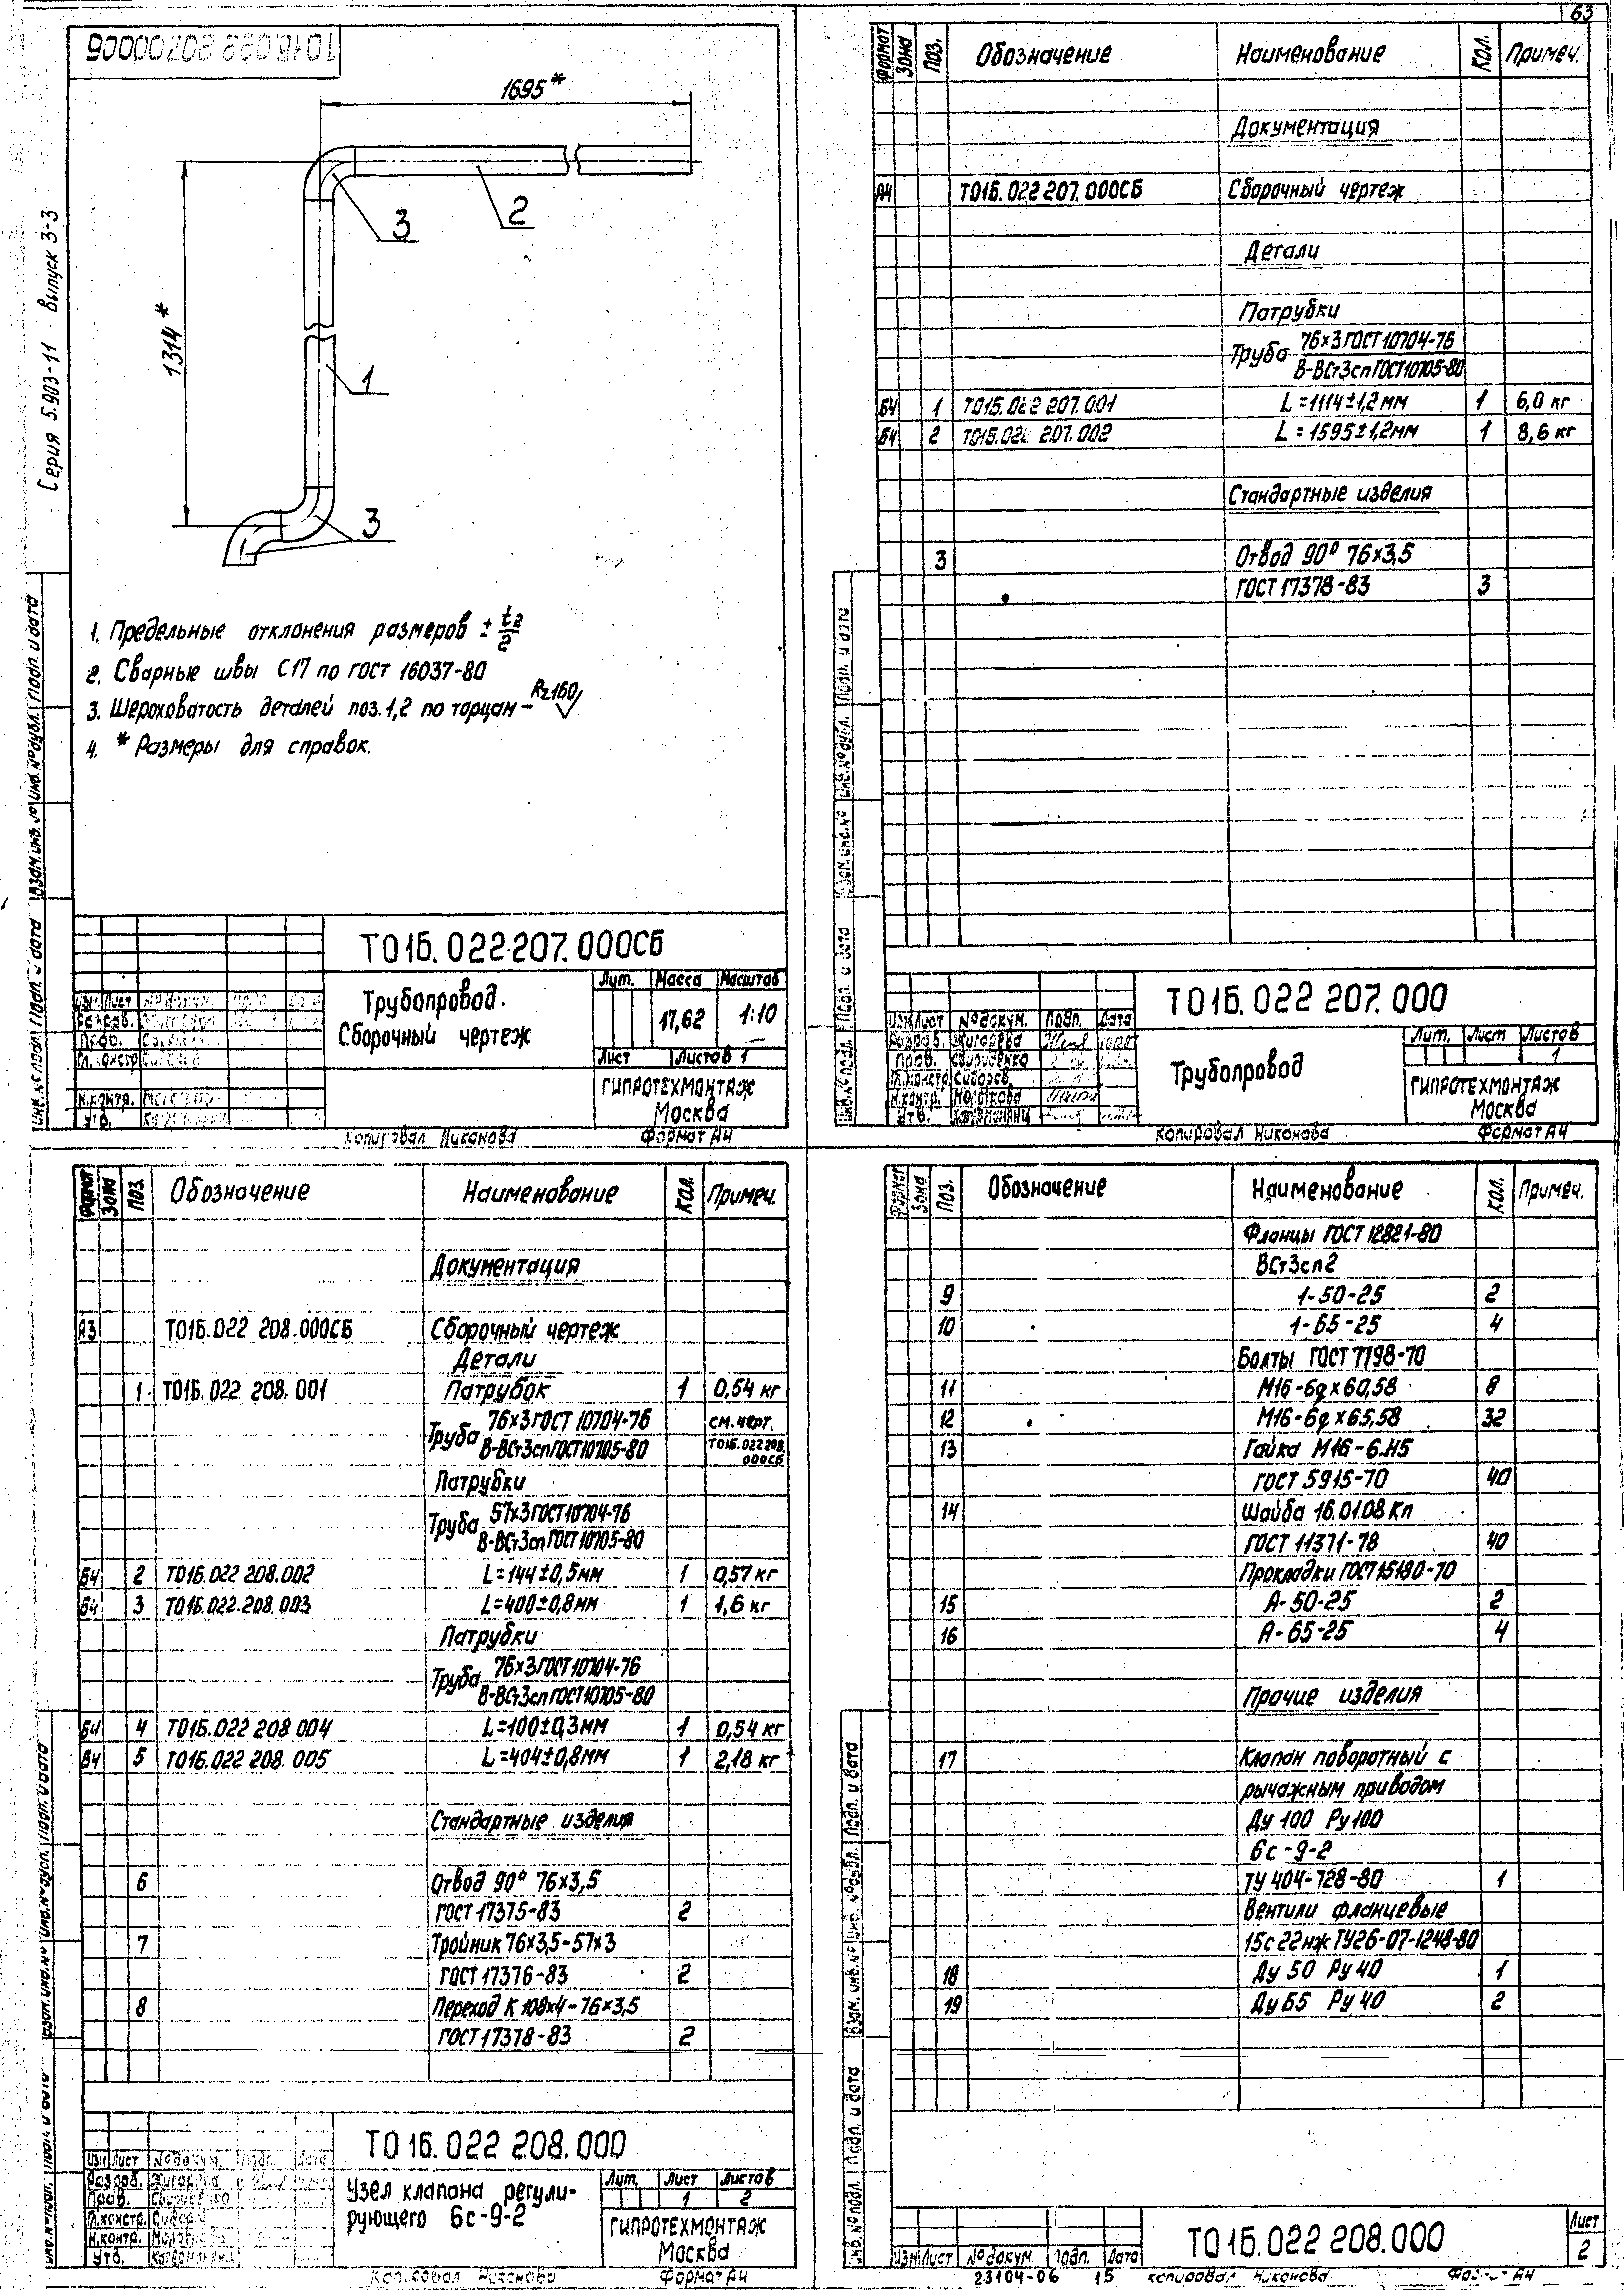 63
Т01Б.022 207.000СБ
Серия 5.903-11 Выпуск 3-3
1695*
1314*
3
2
1
3
1. Предельные отклонения размеров ± t2/2
2. Сварные швы С17 по ГОСТ 16037-80
3. Шероховатость деталей поз.1,2 по торцам – Rz160
4. * Размеры для справок.
Т01Б.022.207.000СБ
Трубопровод.
Сборочный чертеж
Лит. Масса Масштаб
17,62 1:10
Лист Листов 1
ГИПРОТЕХМОНТАЖ
Москва
Изм. Лист
Разраб.
Пров.
Гл.констр.
Н.контр.
Утв.
Копировал Никонова Формат А4
Формат Зона Поз. Обозначение Наименование Кол. Примеч.
Документация
А4 Т01Б.022 207.000СБ Сборочный чертеж
Детали
Патрубки
Труба 76×3 ГОСТ 10704-76
В-ВСт3сп ГОСТ 10705-80
Б4 1 Т01Б.022 207.001 L=1114±1,2 мм 1 6,0 кг
Б4 2 Т01Б.022 207.002 L=1595±1,2мм 1 8,6 кг
Стандартные изделия
3 Отвод 90° 76×3,5
ГОСТ 17378-83 3
Т01Б.022 207.000
Трубопровод
Лит. Лист Листов
1
ГИПРОТЕХМОНТАЖ
Москва
Изм Лист № докум. Подп. Дата
Разраб. Жигарева
Пров. Свириденко
Гл.констр. Сидоров
Н.контр.
Утв.
Копировал Никонова Формат А4
Формат Зона Поз. Обозначение Наименование Кол. Примеч.
Документация
А3 Т01Б.022 208.000СБ Сборочный чертеж
Детали
1 Т01Б.022 208.001 Патрубок 1 0,54 кг
Труба 76×3 ГОСТ 10704-76 см.черт.
В-ВСт3сп ГОСТ 10705-80 Т01Б.022 208.
000СБ
Патрубки
Труба 57×3 ГОСТ 10704-76
В-ВСт3сп ГОСТ 10705-80
Б4 2 Т01Б.022 208.002 L=144±0,5мм 1 0,57 кг
Б4 3 Т01Б.022.208.003 L=400±0,8мм 1 1,6 кг
Патрубки
Труба 76×3 ГОСТ 10704-76
В-ВСт3сп ГОСТ 10705-80
Б4 4 Т01Б.022 208 004 L=100±0,3мм 1 0,54 кг
Б4 5 Т01Б.022 208.005 L=404±0,8мм 1 2,18 кг
Стандартные изделия
6 Отвод 90° 76×3,5
ГОСТ 17375-83 2
7 Тройник 76×3,5-57×3
ГОСТ 17376-83 2
8 Переход К 108×4-76×3,5
ГОСТ 17378-83 2
Т01Б.022 208.000
Узел клапана регули-
рующего 6с-9-2
Лит. Лист Листов
1 2
ГИПРОТЕХМОНТАЖ
Москва
Изм Лист № докум. Подп. Дата
Разраб.
Пров.
Гл.констр.
Н.контр.
Утв.
Копировал Никонова Формат А4
Формат Зона Поз. Обозначение Наименование Кол. Примеч.
Фланцы ГОСТ 12821-80
ВСт3сп2
9 1-50-25 2
10 1-65-25 4
Болты ГОСТ 7798-70
11 М16-6g×60,58 8
12 М16-6g×65,58 32
13 Гайка М16-6.Н5
ГОСТ 5915-70 40
14 Шайба 16.01.08 Кп
ГОСТ 11371-78 40
Прокладки ГОСТ 15180-70
15 А-50-25 2
16 А-65-25 4
Прочие изделия
17 Клапан поворотный с
рычажным приводом
Ду 100 Ру 100
6с-9-2
ТУ 404-728-80 1
Вентили фланцевые
15с22нж ТУ26-07-1248-80
18 Ду 50 Ру 40 1
19 Ду 65 Ру 40 2
Т01Б.022 208.000
Лист
2
Изм Лист № докум. Подп. Дата
23104-06 15 Копировал Никонова Формат А4